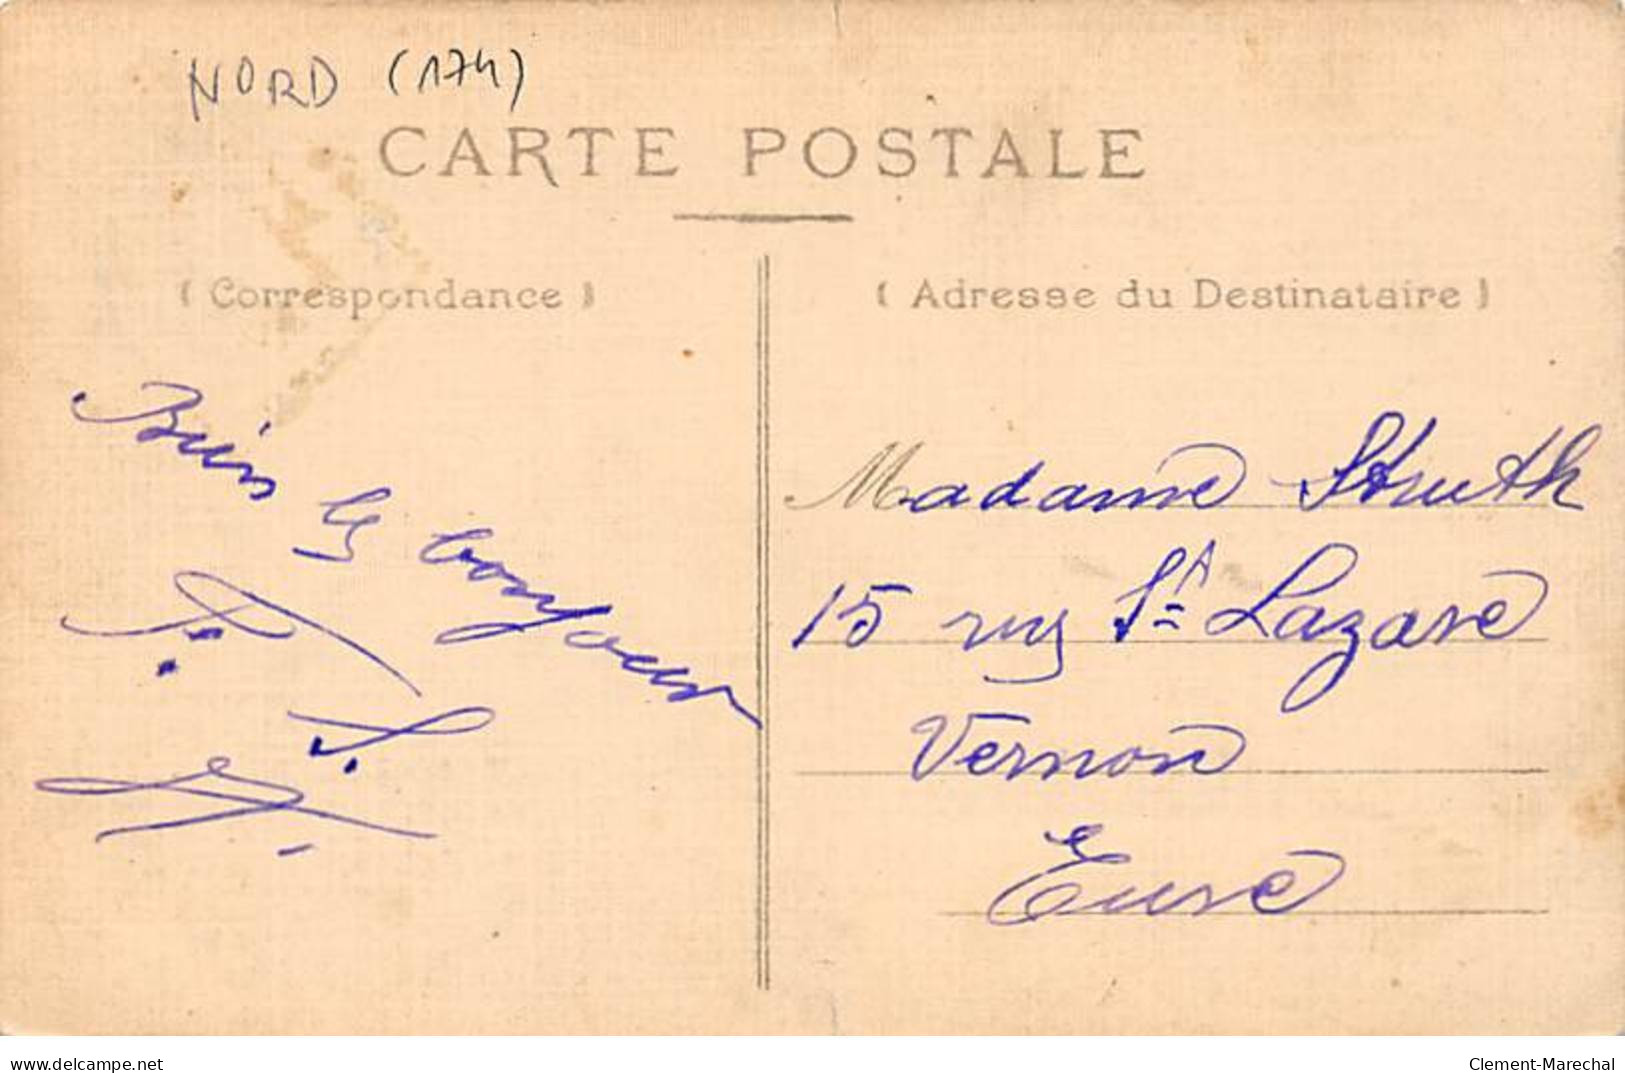 NORD (174)
CARTE POSTALE
( Correspondance )
( Adresse du Destinataire )
Bien le bonjour
Madame Struth
15 rue St Lazare
Vernon
Eure
delcampe.net
Clement-Marechal